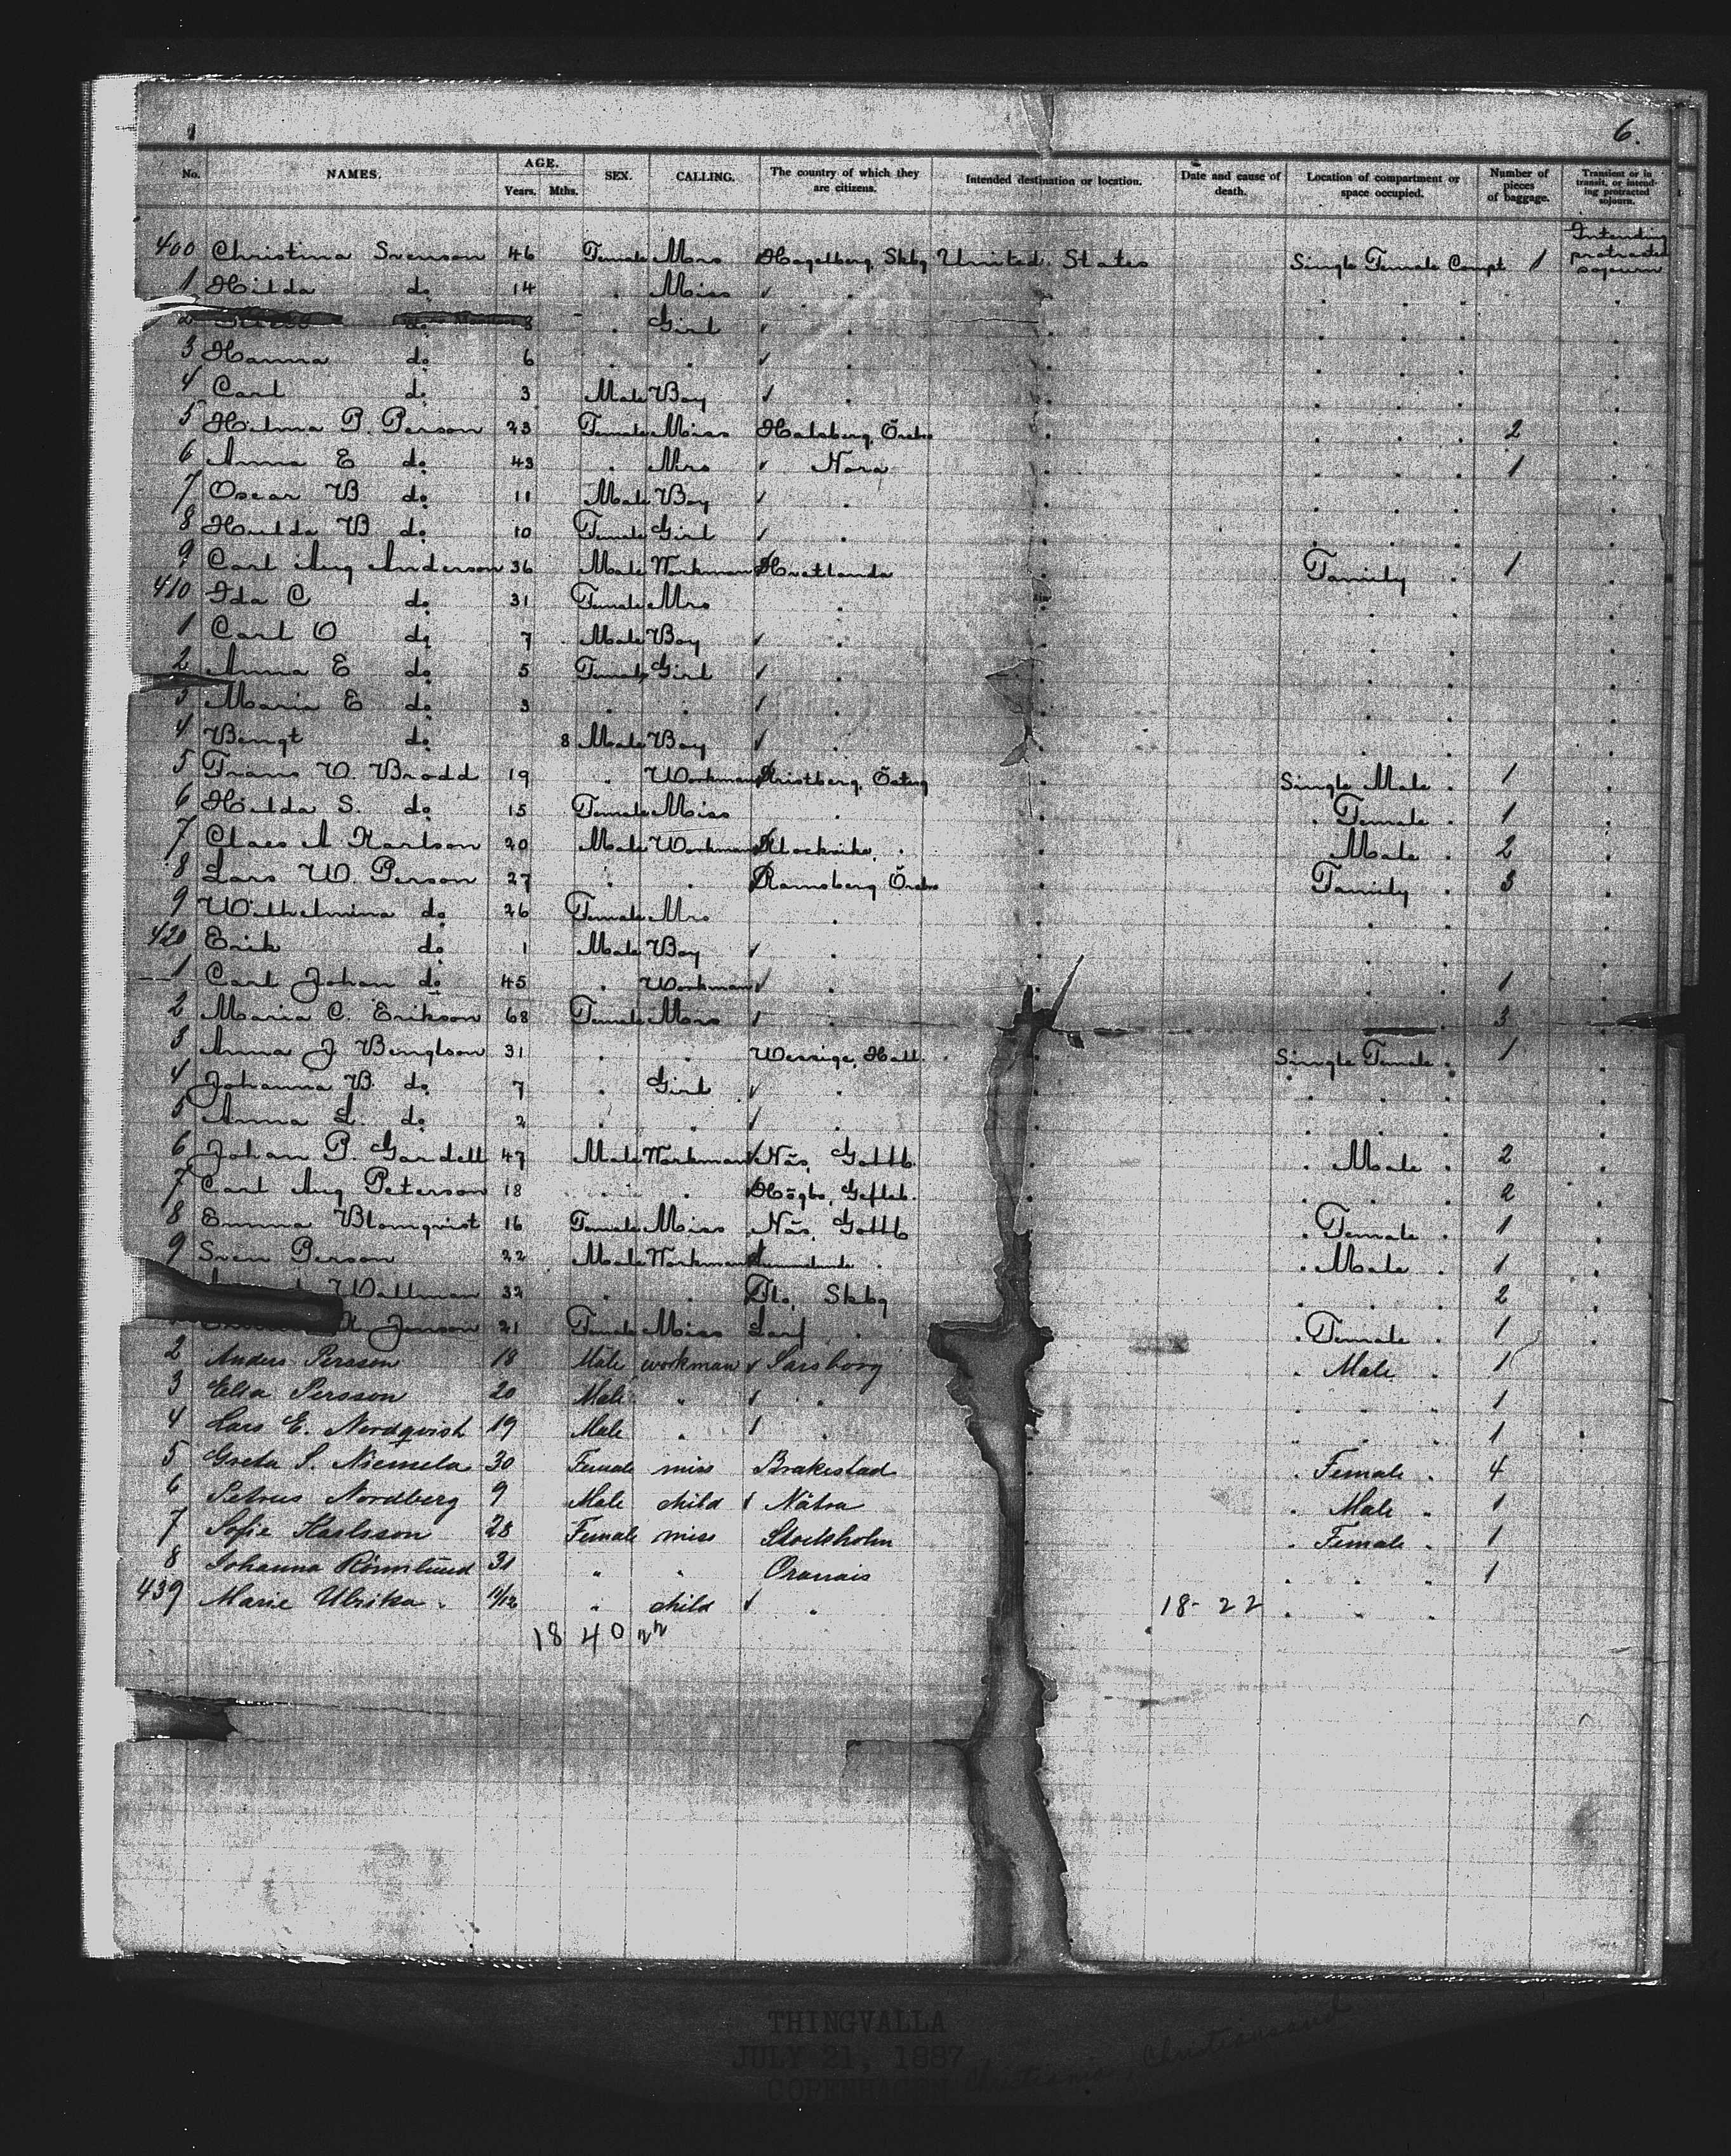 6.
No. NAMES. AGE. Years. Mths. SEX. CALLING. The country of which they are citizens. Intended destination or location. Date and cause of death. Location of compartment or space occupied. Number of pieces of baggage. Transient or in transit, or intending protracted sojourn.
400 Christina Svenson 46 Female Mrs Hagelberg, Skbg United States Single Female Compt 1 Intending protracted sojourn
1 Hilda do 14 . Miss
2 do 8 . Girl
3 Hanna do 6 . .
4 Carl do 3 Male Boy
5 Hilma P. Person 23 Female Miss Halsberg, Örebro 2
6 Anna E do 43 . Mrs Nora 1
7 Oscar B do 11 Male Boy
8 Hulda B do 10 Female Girl
9 Carl Aug Anderson 36 Male Workman Hvetlanda Family . 1
410 Ida C do 31 Female Mrs
1 Carl O do 7 Male Boy
2 Anna E do 5 Female Girl
3 Maria E do 3 . .
4 Bengt do 8 Male Boy
5 Frans O. Brodd 19 . Workman Kristberg, Österg Single Male . 1
6 Hilda S. do 15 Female Miss . . Female . 1
7 Claes A Karlson 20 Male Workman Klockrike, . Male . 2
8 Lars W. Person 27 . . Ramsberg Örebro Family . 3
9 Wilhelmina do 26 Female Mrs
420 Erik do 1 Male Boy
1 Carl Johan do 45 . Workman 1
2 Maria C. Erikson 68 Female Mrs 3
3 Anna J Bengtson 31 . . Wessige, Hall. Single Female . 1
4 Johanna B. do 7 . Girl
5 Anna L. do 2 . .
6 Johan P. Gardell 47 Male Workman Näs, Gottb. . Male . 2
7 Carl Aug Peterson 18 . . Högbo, Gefleb. 2
8 Emma Blomqvist 16 Female Miss Näs, Gottb . Female . 1
9 Sven Person 22 Male Workman . Male . 1
Wallman 32 . . Flo, Skbg 2
Jonson 21 Female Miss . . Female . 1
2 Anders Persson 18 Male workman Sarsborg . Male . 1
3 Persson 20 Male " 1
4 Lars E. Nordqvist 19 Male " 1
5 Greta S. Niemela 30 Female miss Brakestad . Female . 4
6 Petrus Nordberg 9 Male child Nätra . Male . 1
7 Sofie Karlsson 28 Female miss Stockholm . Female . 1
8 Johanna Rönnlund 31 " " Oravais 1
439 Marie Ulrika . 11/12 " child " 18-22
18 40 22
THINGVALLA
JULY 21, 1887
COPENHAGEN Christiania, Christiansand